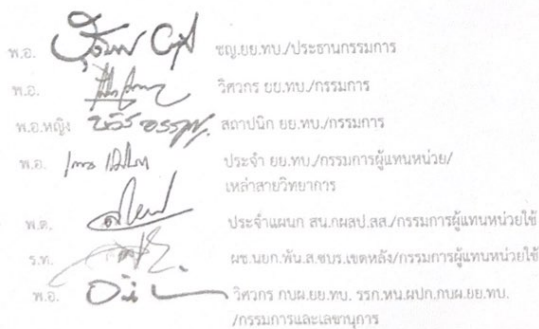 พ.อ. ชญ.ยย.ทบ./ประธานกรรมการ
พ.อ. วิศวกร ยย.ทบ./กรรมการ
พ.อ.หญิง สถาปนิก ยย.ทบ./กรรมการ
พ.อ. ประจำ ยย.ทบ./กรรมการผู้แทนหน่วย/
เหล่าสายวิทยาการ
พ.ต. ประจำแผนก สน.ภผสป.สส./กรรมการผู้แทนหน่วยใช้
ร.ท. ผช.นยก.พัน.ส.ซบร.เขตหลัง/กรรมการผู้แทนหน่วยใช้
พ.อ. วิศวกร กบผ.ยย.ทบ. รรก.หน.ผปก.กบผ.ยย.ทบ.
/กรรมการและเลขานุการ